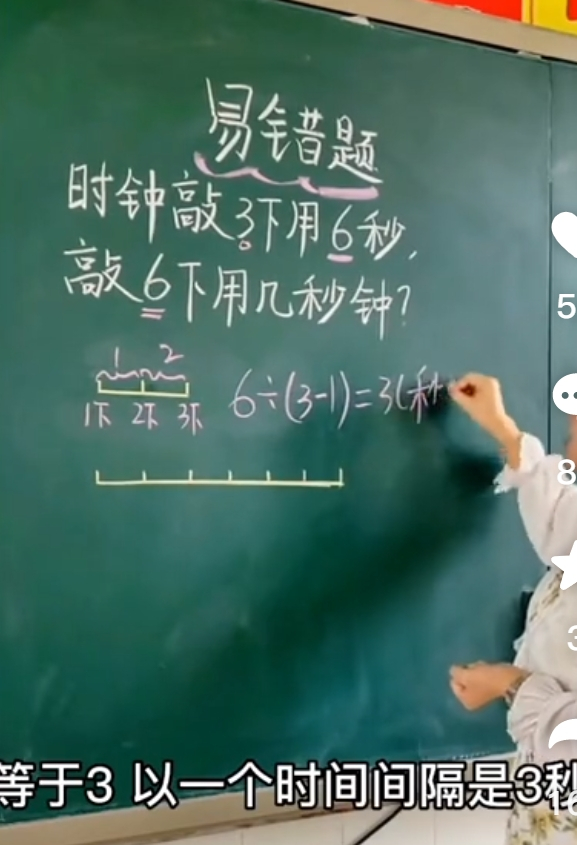 易错题
时钟敲3下用6秒,
敲6下用几秒钟?
1 2
1下 2下 3下
6÷(3-1)=3(秒
5
8
3
等于3 以一个时间间隔是3秒